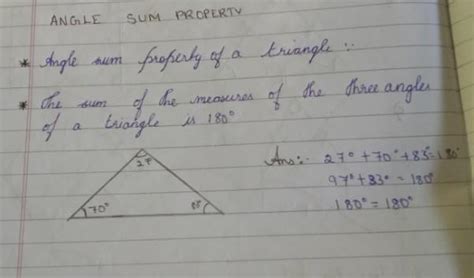 ANGLE SUM PROPERTY
* Angle sum property of a triangle :-
* The sum of the measures of the three angles
of a triangle is 180°
Ans:- 27° + 70° + 83° = 180°
97° + 83° = 180°
180° = 180°
27
70°